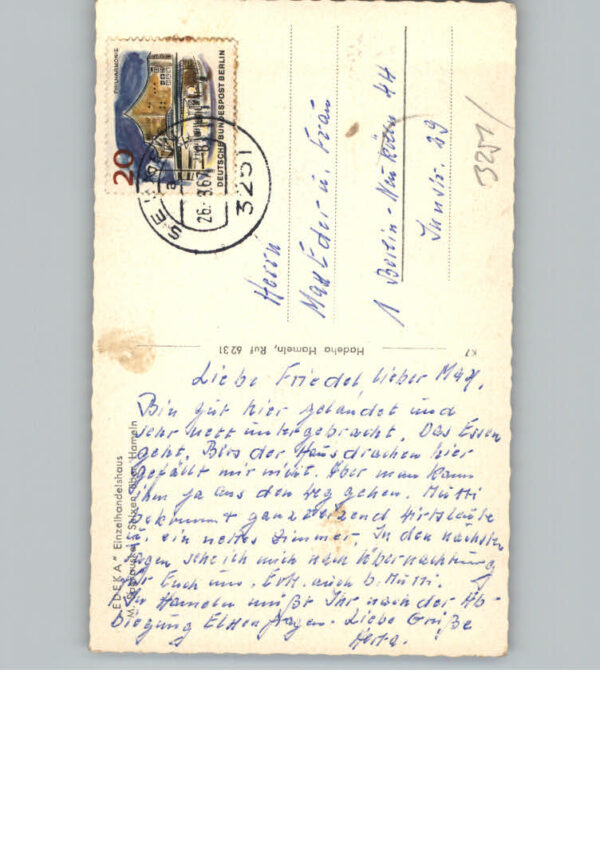 PHILHARMONIE
20
DEUTSCHE BUNDESPOST BERLIN
26.3.67
3251
Herrn
Max Eder u. Frau
1 Berlin-Neukölln 44
Innstr. 29
3251/
Hadeha Hameln, Ruf 6231
K7
"EDEKA" Einzelhandelshaus
Selxen über Hameln
Liebe Friedel lieber Max,
Bin gut hier gelandet und
sehr nett untergebracht. Das Essen
geht. Blos der Hausdrachen hier
gefällt mir nicht. Aber man kann
ihm ja aus den Weg gehen. Mutti
bekommt ganz reizend Wirtsleute
u. ein nettes Zimmer. In den nächsten
Tagen sehe ich mich nach Übernachtung
für Euch um. Evtl. auch b. Mutti.
In Hameln müßt Ihr nach der Ab-
biegung fragen. Liebe Grüße
Herta.